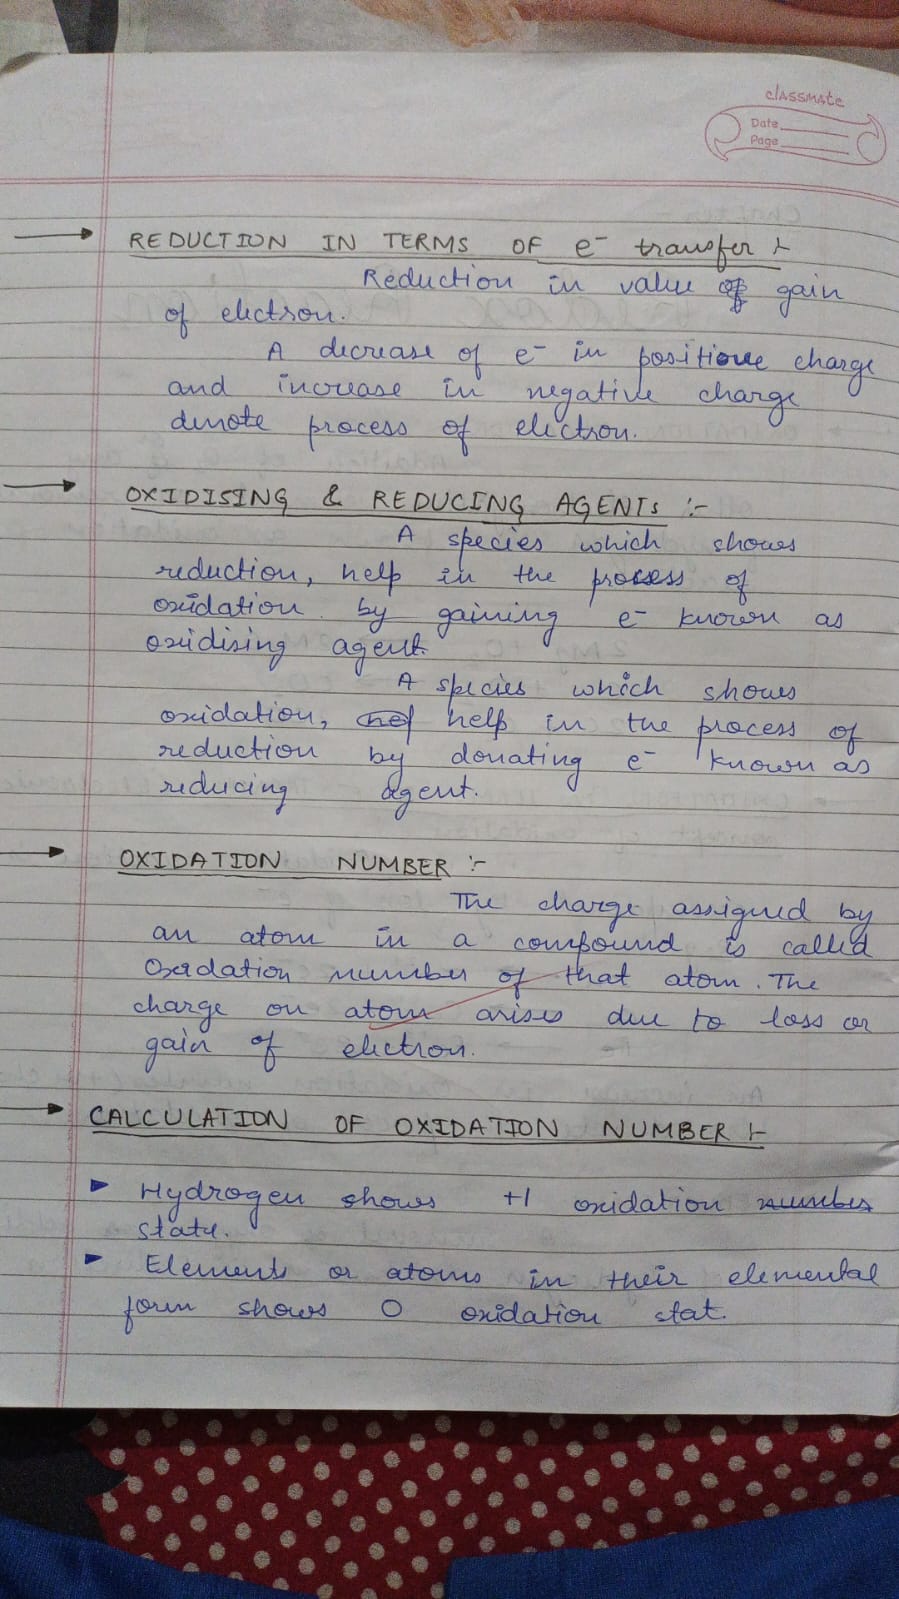 classmate
Date
Page
→ REDUCTION IN TERMS OF e⁻ transfer :-
Reduction in value of gain
of electron.
A decrease of e⁻ in positive charge
and increase in negative charge
denote process of electron.
→ OXIDISING & REDUCING AGENTS :-
A species which shows
reduction, help in the process of
oxidation by gaining e⁻ known as
oxidising agent.
A species which shows
oxidation, help in the process of
reduction by donating e⁻ known as
reducing agent.
→ OXIDATION NUMBER :-
The charge assigned by
an atom in a compound is called
Oxidation number of that atom. The
charge on atom arises due to loss or
gain of electron.
→ CALCULATION OF OXIDATION NUMBER :-
▸ Hydrogen shows +1 oxidation number
state.
▸ Elements or atoms in their elemental
form shows 0 oxidation stat.